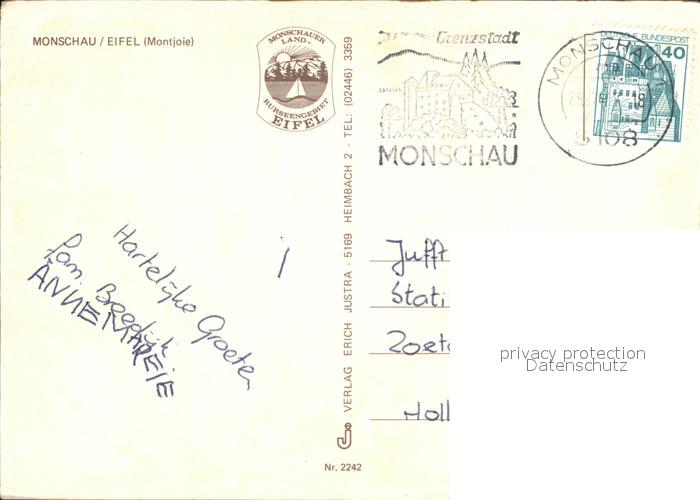 MONSCHAU / EIFEL (Montjoie)
MONSCHAUER
LAND-
RURSEENGEBIET
EIFEL
Grenzstadt
MONSCHAU
MONSCHAU
18
5108
DEUTSCHE BUNDESPOST
40
Hartelijke Groeten
fam. Breedijk.
ANNEMAREIE
VERLAG ERICH JUSTRA · 5169 HEIMBACH 2 - TEL: (02446) 3359
Jufft
Stati
Zoet
Holl
privacy protection
Datenschutz
Nr. 2242